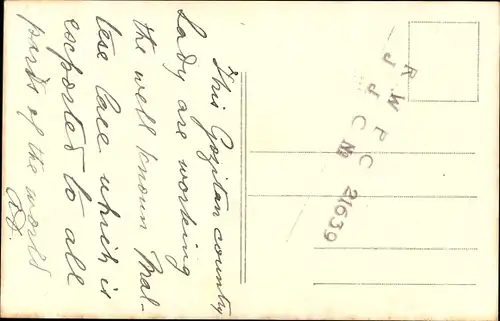 This Gozitan country
Lady are working
the well known Mal-
tese lace which is
exported to all
parts of the world
R W P C
J J C M
21639